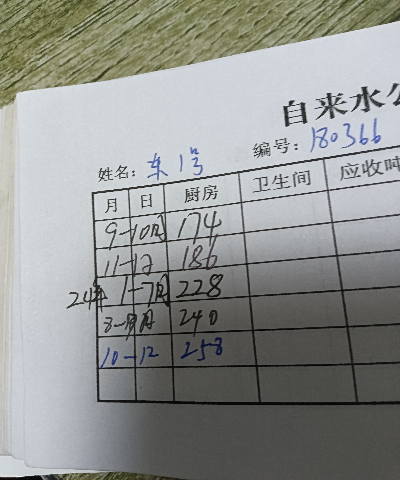 自来水公
姓名: 东1号 编号: 180366
月 日 厨房 卫生间 应收吨
9-10月 174
11-12 186
24年 1-7月 228
8-9月 240
10-12 258